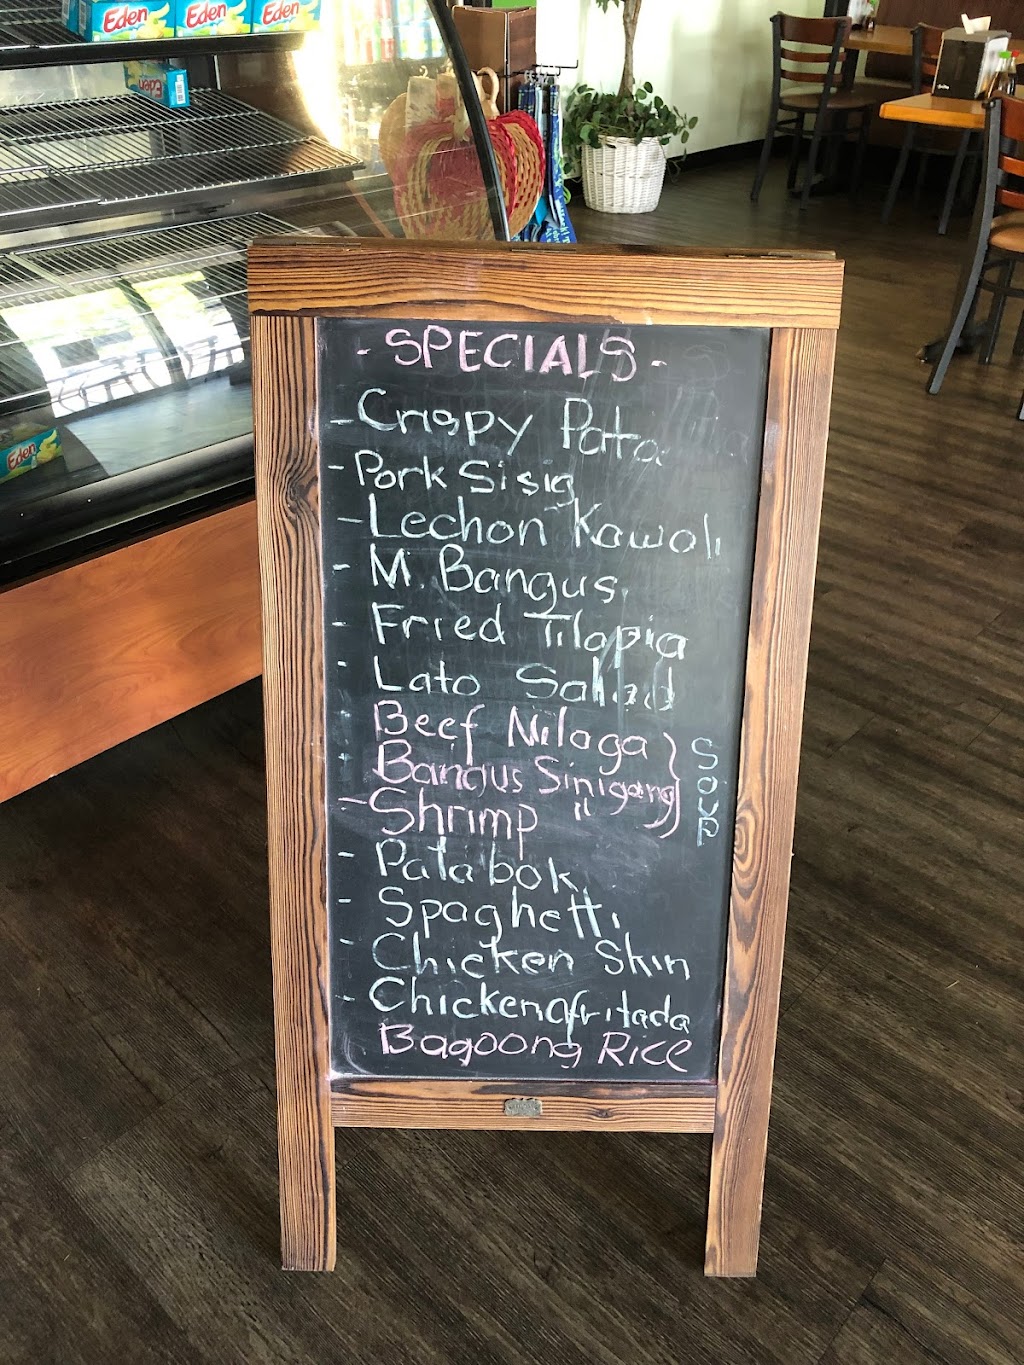 Eden
Eden
Eden
Eden
Eden
- SPECIALS -
- Crispy Pata
- Pork Sisig
- Lechon Kawali
- M. Bangus
- Fried Tilapia
- Lato Salad
Beef Nilaga
- Bangus Sinigang
- Shrimp "
SOUP
- Palabok
- Spaghetti
- Chicken Skin
- Chicken afritada
Bagoong Rice